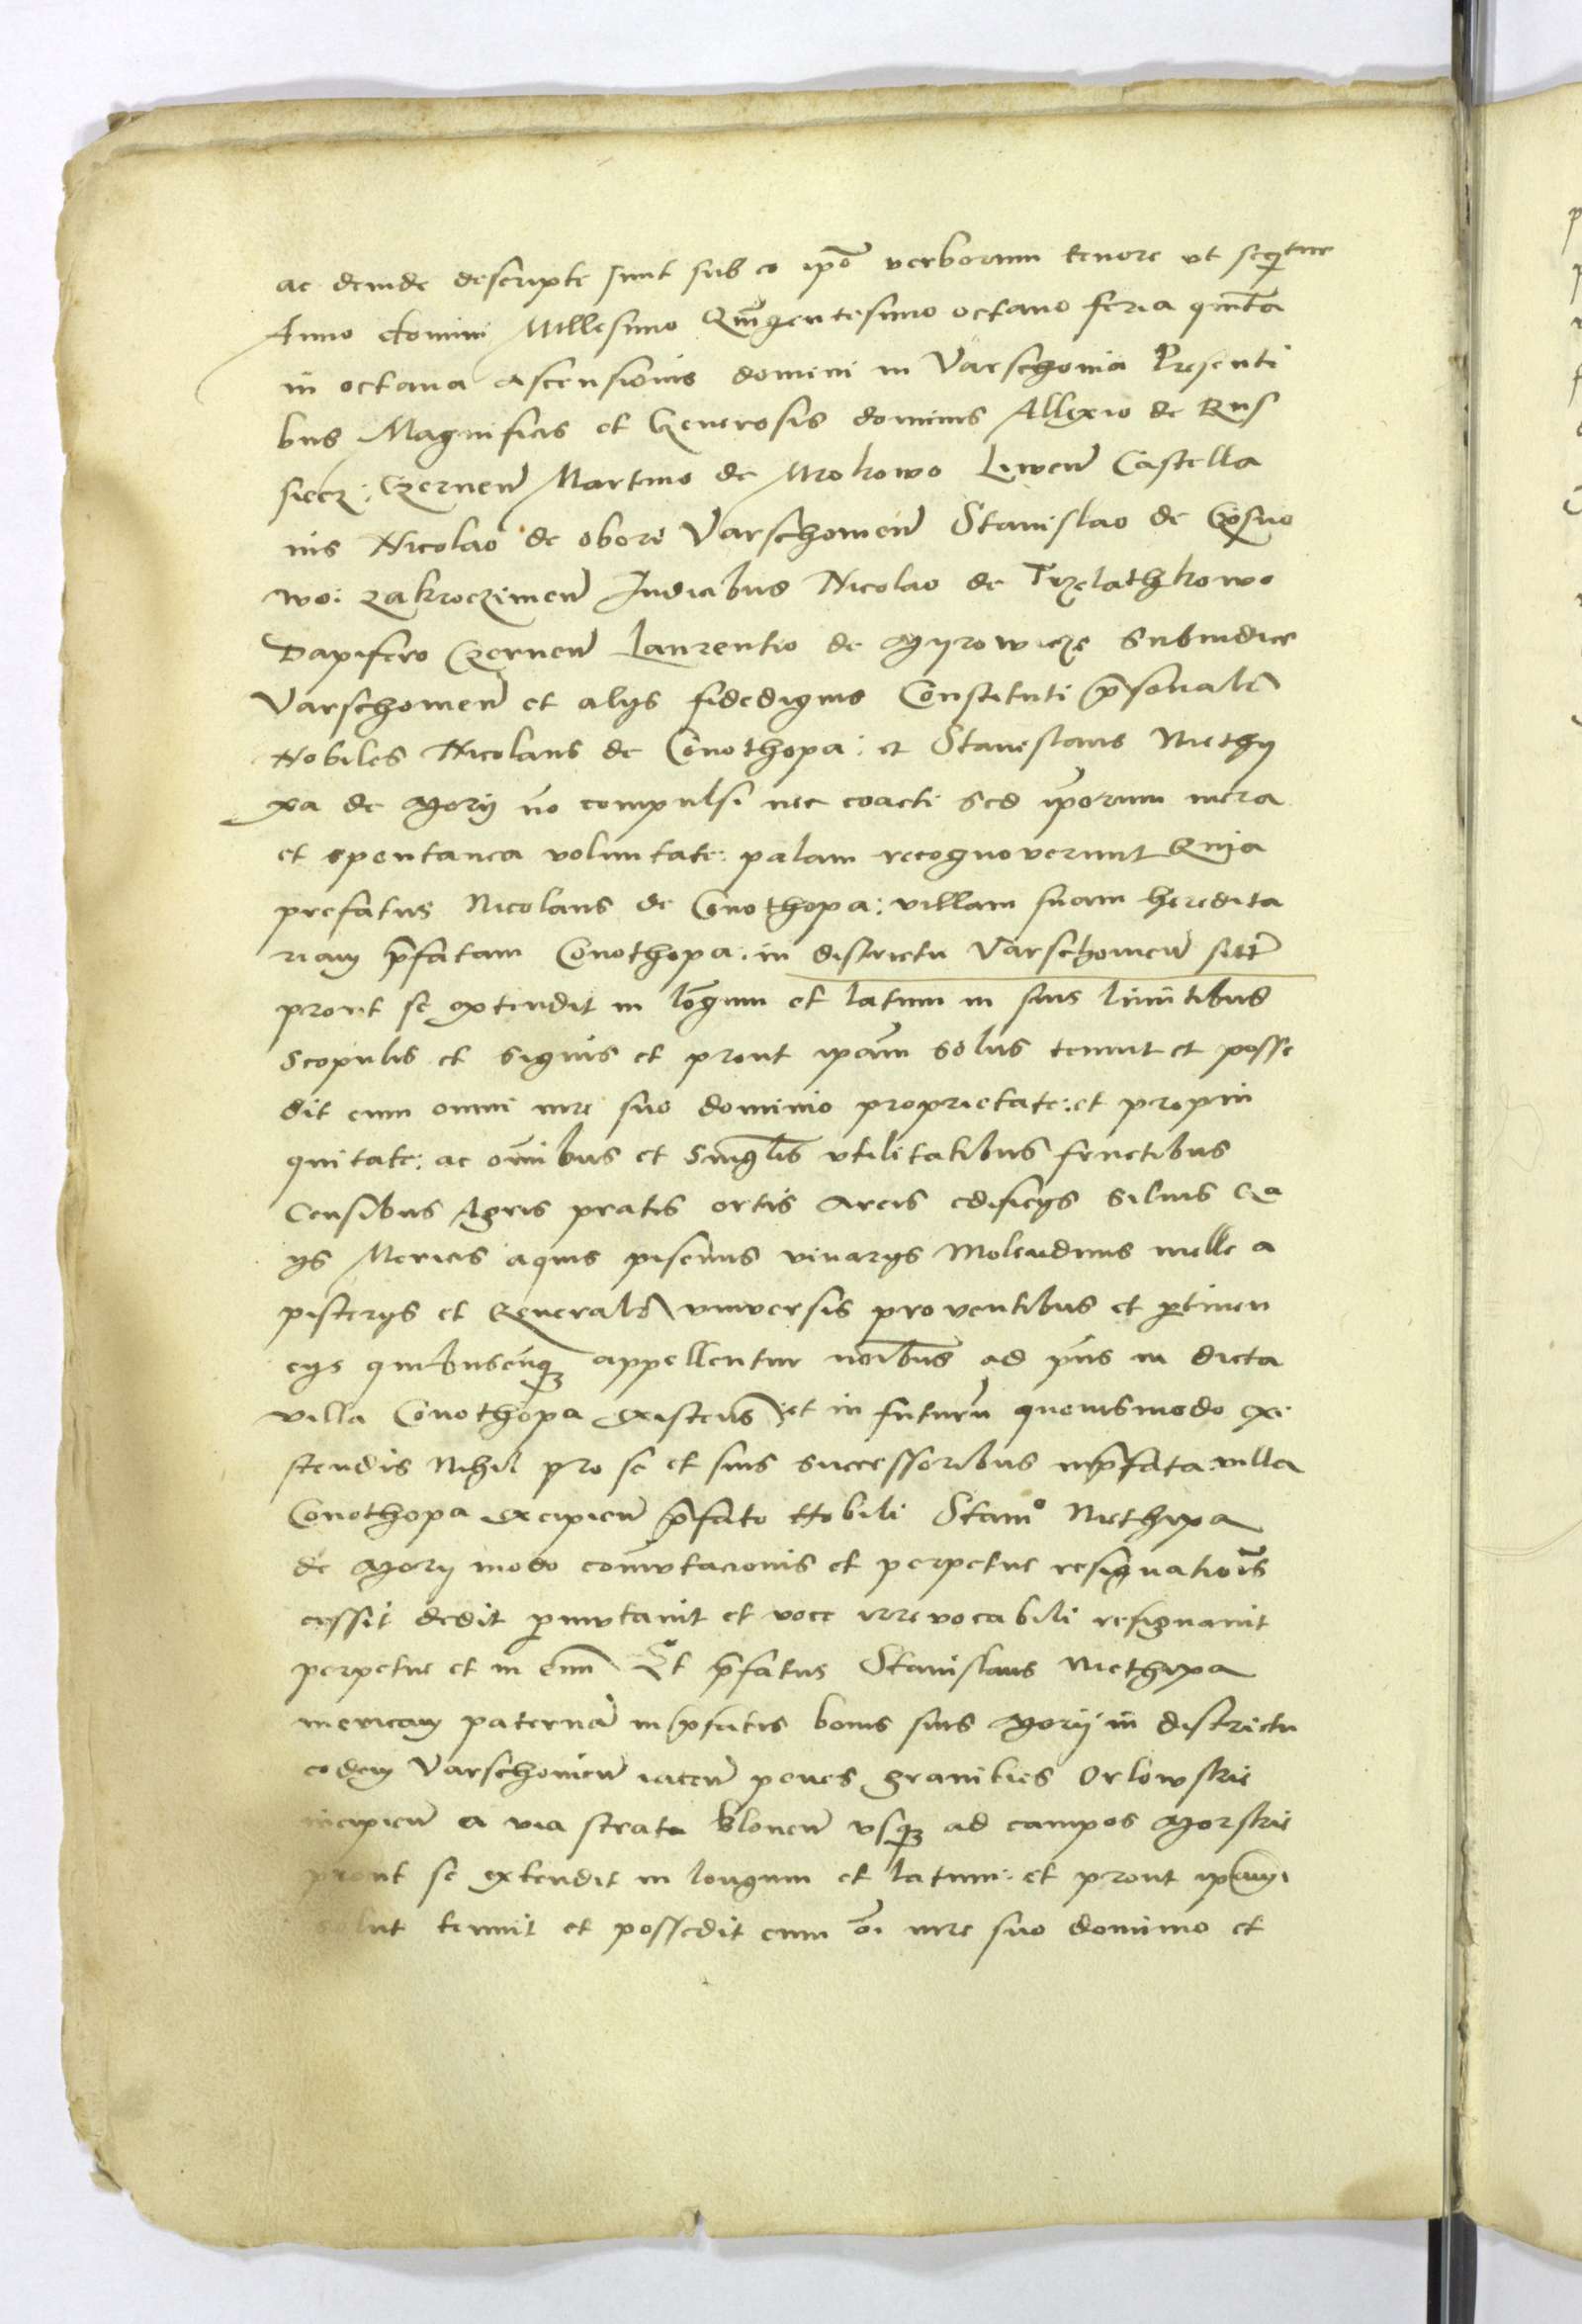 ac deinde descripte sunt sub eo ipō verborum tenore ut seqitur
Anno domini Millesimo Quīgentesimo octavo feria quīta
in octava ascensionis domini in Varschovia Presenti
bus Magnificis et Generosis dominis Allexio de Rus
siecz: Czerneñ Martino de Mrokowo Liweñ Castella
nis Nicolao de obori Varschovieñ Stanislao de
wo: Zakroczimeñ Iudicibus Nicolao de Trzelathkowo
Dapifero Czerneñ Laurentio de Gyrowicze Subiudice
Varschovieñ et alijs fidedignis Constituti p̄sonalr̄
Nobiles Nicolaus de Conothopa: et Stanislaus Methy
pa de Gorij nō compulsi nec coacti sed ip̄orum mera
et spontanea voluntate: palam recognoverunt Quia
prefatus Nicolaus de Conothopa: villam suam heredita
riam p̄fatam Conothopa: in districtu Varschovieñ sitā
prout se extendit in lōgum et latum in suis limitibus
Scopulis et signis et prout ipām solus tenuit et posse
dit cum omni iure suo dominio proprietate: et propin
quitate: ac oīmibus et singl̄is utilitatibus fructibus
Censibus Agris pratis ortis Areis edificijs Silvis Ga
ijs Mericis aquis piscinis vivarijs Molendinis melle a
pisterijs et Generalr̄ universis proventibus et p̄tinen
cijs quibuscūq; appellentur noībus ad p̄ns in dicta
villa Conothopa existeñ et in futurū quovismodo exi
stendis Nihil pro se et suis successoribus in p̄fata villa
Conothopa excipieñ p̄fato Nobili Stanᵒ Methypa
de Gorij modo comūtacionis et perpetue resignatiōis
cessit dedit p̄mutavit et voce irrevocabili resignavit
perpetue et in evū Et p̄fatus Stanislaus Methypa
mericam paternā in p̄fatis bonis suis Gorij in districtu
eodem Varschovieñ iaceñ penes granities Orlowskie
incipieñ a via strata bloneñ usq; ad campos Gorskie
prout se extendit in longum et latum: et prout ipam
solus tenuit et possedit cum ōi iure suo dominio et